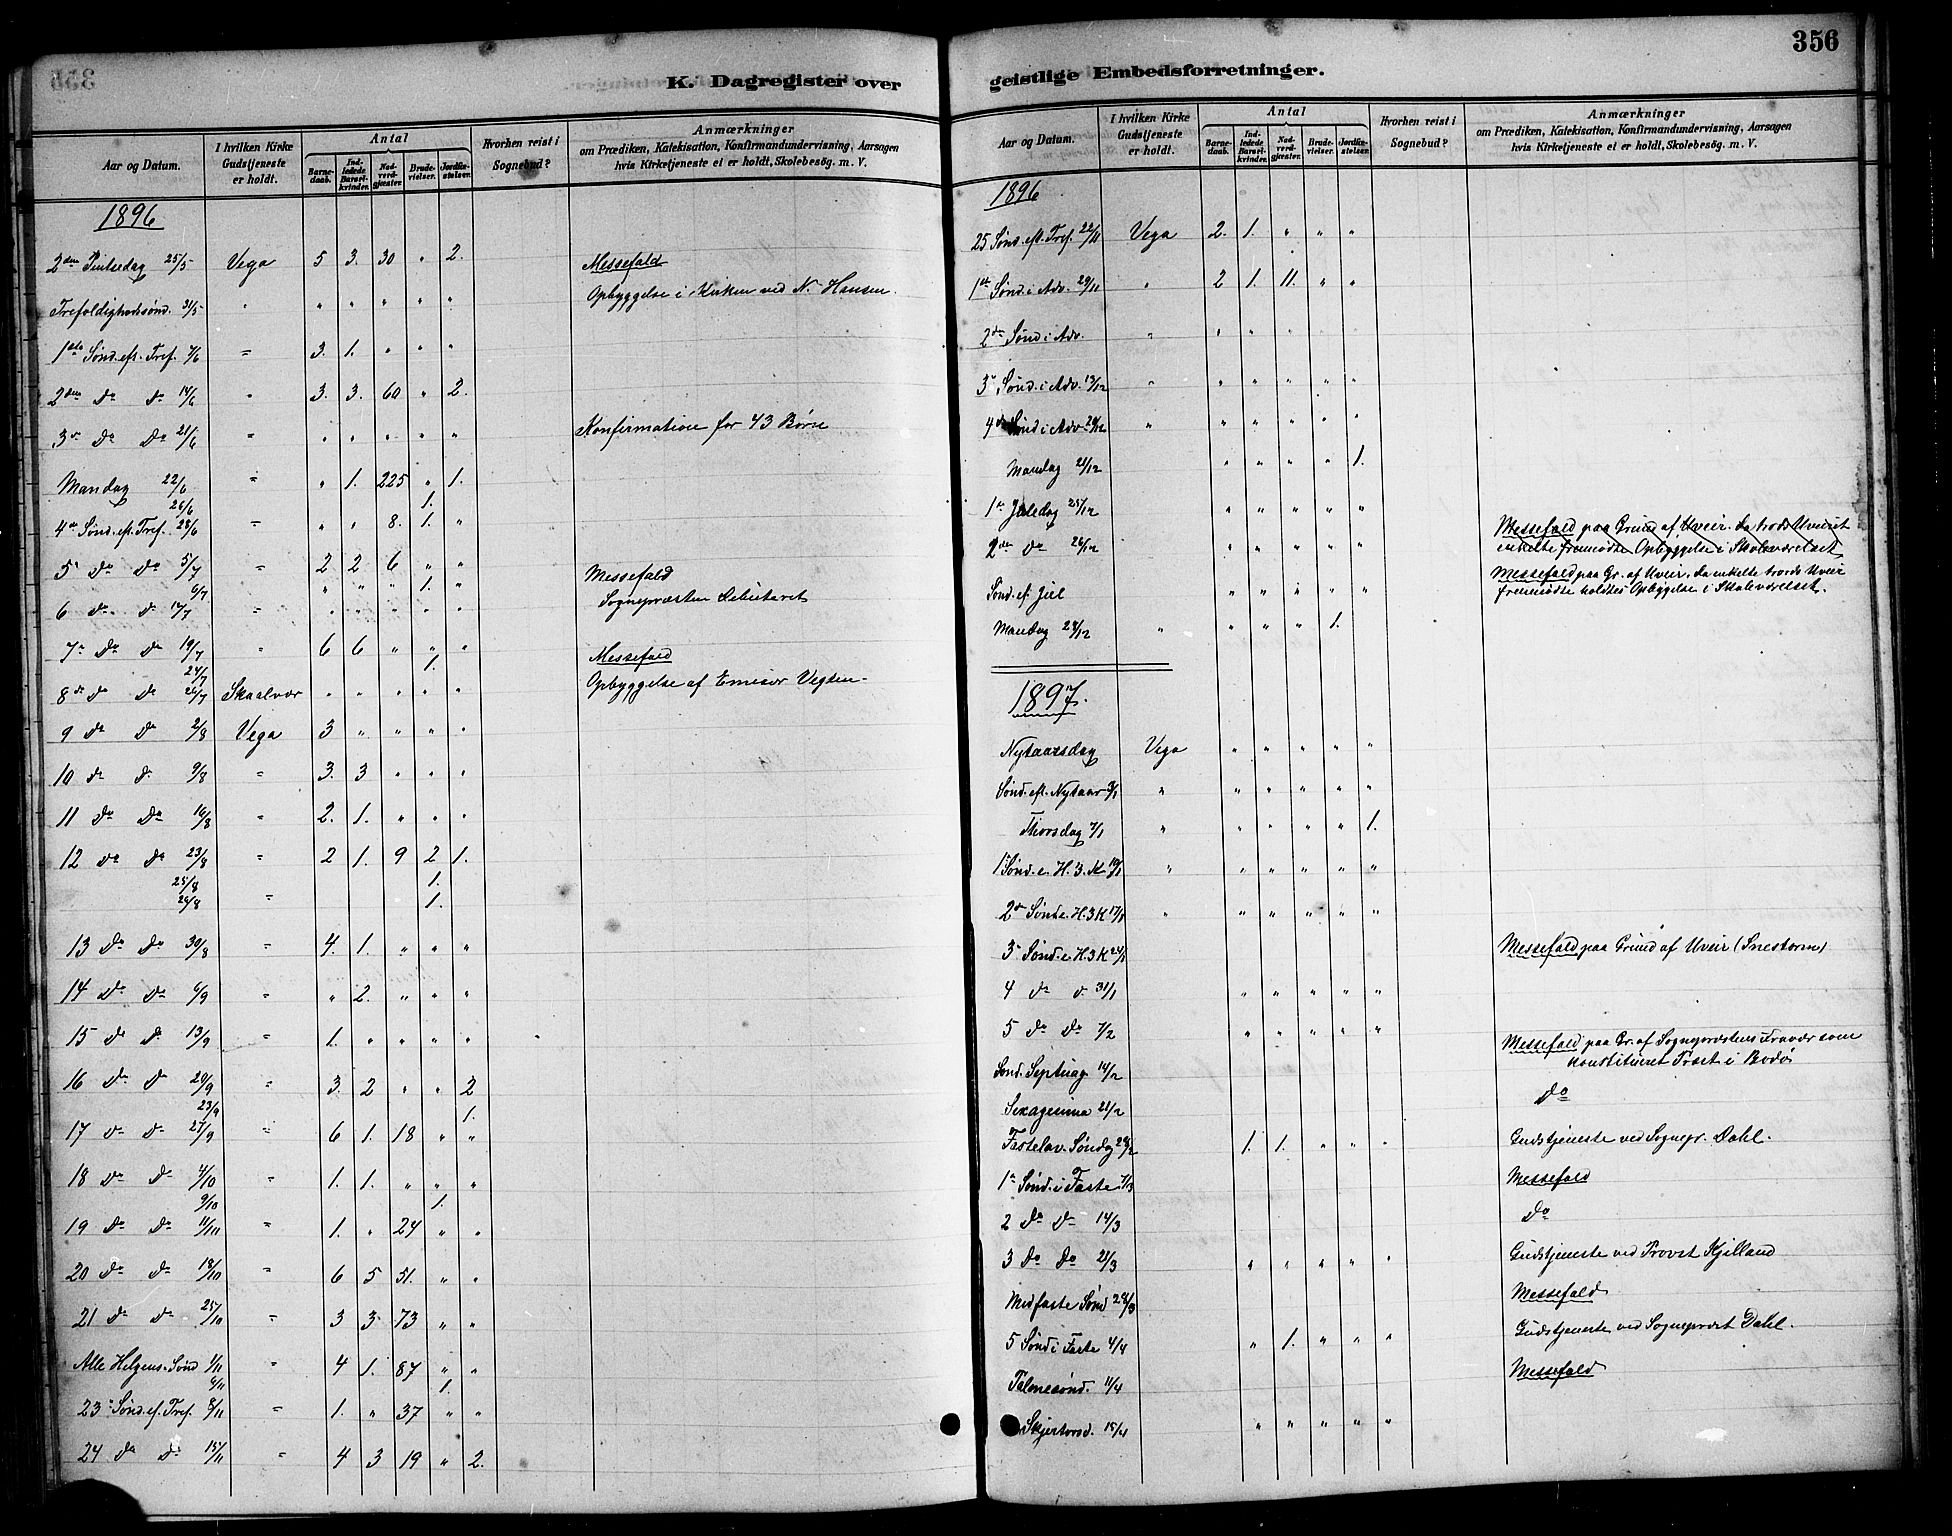 K. Dagregister over
Aar og Datum. I hvilken Kirke Gudstjeneste er holdt. Antal Barnedaab. Indledede Barselkvinder. Nadverdgjæster. Brudevielser. Jordfæstelser. Hvorhen reist i Sognebud? Anmærkninger om Prædiken, Katekisation, Konfirmandundervisning, Aarsagen hvis Kirketjeneste ei er holdt, Skolebesøg. m. V.
1896
2den Pintsedag 25/5 Vega 5 3. 30 " 2. Messefald
Trefoldighedssønd. 31/5 " " " " " " Opbyggelse i Kirken ved N. Hansen
1ste Sønd. eft. Tref. 7/6 " 3. 1. " " "
2den do do 14/6 " 3. 3. 60 " 2.
3e do do 21/6 " " " " " " Konfirmation for 43 Børn
Mandag 22/6 " " 1. 225 " 1.
26/6 1.
4de Sønd. eft. Tref. 28/6 " " " 8. 1. "
5 do do 5/7 " 2 2 6 " " Messefald
6/7 " " " 1. "
6 do do 12/7 " " " " " " Sognepræsten
7 do do 19/7 " 6 6 " " " Messefald
24/7 1.
8de do do 26/7 Skaalvær " " " " " Opbyggelse af Emisær Vegsen
9 do do 2/8 Vega 3 " " " "
10 do do 9/8 " 3. 3 " " "
11 do do 16/8 " 2. 1. " " "
12 do do 23/8 " 2 1. 9 2 1.
25/8 1.
26/8 " 1.
13 do do 30/8 " 4. 1. " " "
14 do do 6/9 " " 2. " " "
15 do do 13/9 " 1. " " " "
16 do do 20/9 " 3. 2 " " 2
23/9 1.
17 do do 27/9 " 6 1. 18 " "
18 do do 4/10 " 1. 1. " " "
9/10 1.
19 do do 11/10 " 1. " 24 " "
20 do do 18/10 " 6 5 51. " "
21 do do 25/10 " 3 3 73 " "
Alle Helgens-Sønd 1/11 " 4 1. 87 " "
6/11 1.
23 Sønd. ef. Tref. 8/11 " 1. " 37 " "
24 do do 15/11 " 4 3 19 " 2.
356
geistlige Embedsforretninger.
Aar og Datum. I hvilken Kirke Gudstjeneste er holdt. Antal Barnedaab. Indledede Barselkvinder. Nadverdgjæster. Brudevielser. Jordfæstelser. Hvorhen reist i Sognebud? Anmærkninger om Prædiken, Katekisation, Konfirmandundervisning, Aarsagen hvis Kirketjeneste ei er holdt, Skolebesøg. m. V.
1896
25 Sønd. eft. Tref. 22/11 Vega 2. 1. " " "
1ste Sønd. i Adv. 29/11 " 2 1. 11. " "
2den Sønd i Adv. " " " " " "
3e Sønd. i Adv. 13/12 " " " " " "
4de Sønd i Adv. 20/12 " " " " " "
Mandag 21/12 " " " " 1.
1ste Juledag 25/12 " " " " "
Messefald paa Grund af Uveir. da trods Uveiret
2den do 26/12 " " " " " enkelte fremmødte Opbyggelse i Skoleværelset
Messefald paa Gr. af Uveir. da enkelte trods Uveir
Sønd. ef. Jul " " " " " fremmødte holdtes Opbyggelse i Skoleværelset.
Mandag 28/12 " " " " 1.
1897.
Nytaarsdag Vega " " " " "
Sønd. eft. Nytaar 3/1 " " " " " "
Thorsdag 7/1 " " " " " 1.
1 Sønd. e. H. 3. K. 10/1 " " " " " "
2den Sønd e. H. 3 K 17/1 " " " " " "
3e Sønd. e. H. 3 K 24/1 Messefald paa Grund af Uveir (Snestorm)
4 do do 31/1 " " " " "
5 do do 7/2 " " " " "
Messefald paa Gr. af Sognepræstens Fravær som
Sønd. Septuag. 14/2 konstitueret Præst i Bodø
Sexagesima 21/2 do
Fastelav. Søndg 28/2 1. 1. " " " Gudstjeneste ved Sognepr. Dahl.
1ste Sønd. i Faste 7/3 Messefald
2 do do 14/3 do
3 do do 21/3 " " " " " Gudstjeneste ved Provst Kjilland
Midfaste Sønd 28/3 Messefald
5 Sønd i Faste 4/4 " 1. " " " Gudstjeneste ved Sognepræst Dahl.
Palmesønd. 11/4 Messefald
Skjertorsd. 15/4 " " " " "